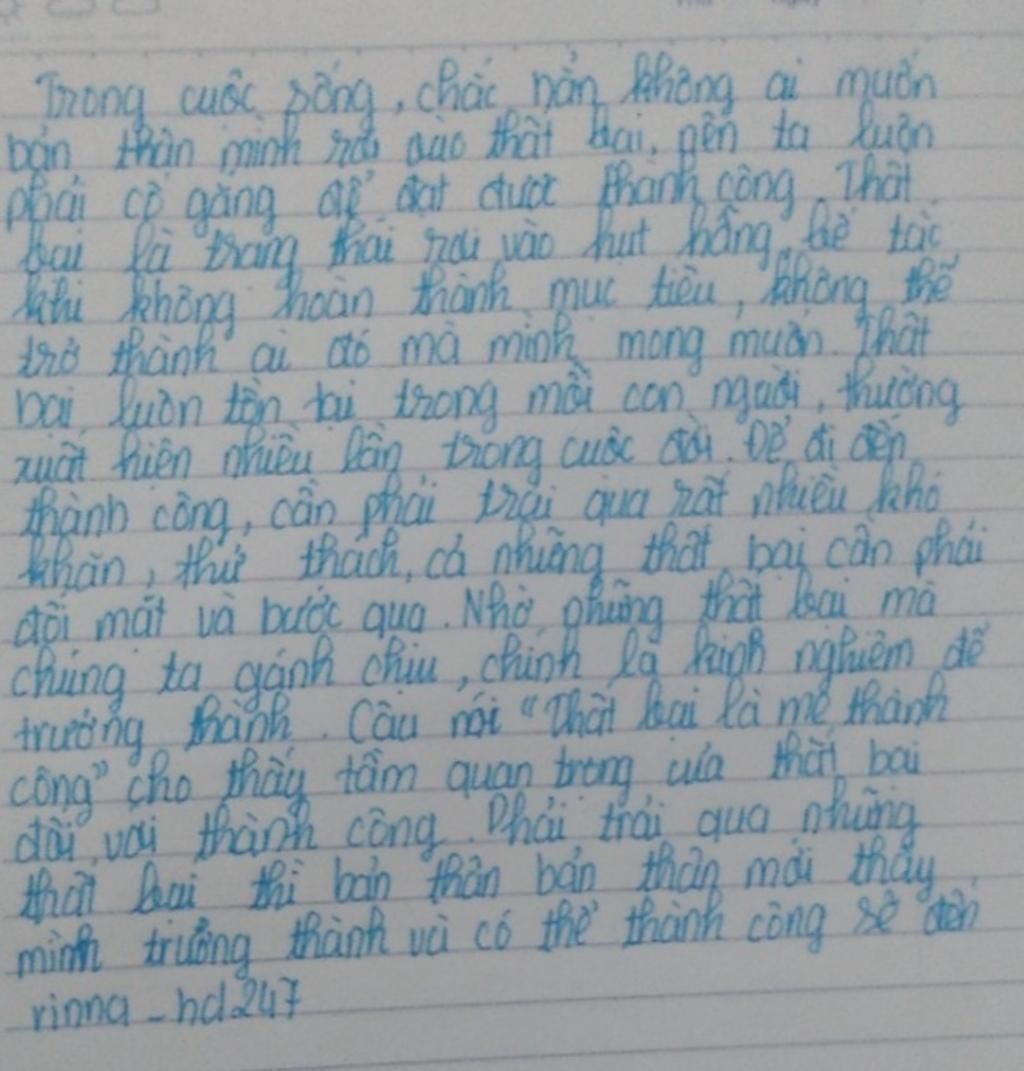 Trong cuộc sống, chắc nản không ai muốn
bản thân mình rơi vào thất bại, nên ta luôn
phải cố gắng để đạt được thành công. Thất
bại là trạng thái rơi vào hụt hẫng, bế tắc
khi không hoàn thành mục tiêu, không thể
trở thành ai đó mà mình mong muốn. Thất
bại luôn tồn tại trong mỗi con người, thường
xuất hiện nhiều lần trong cuộc đời. Để đi đến
thành công, cần phải trải qua rất nhiều khó
khăn, thử thách, cả những thất bại cần phải
đối mặt và bước qua. Nhờ những thất bại mà
chúng ta gánh chịu, chính là kinh nghiệm để
trưởng thành. Câu nói "Thất bại là mẹ thành
công" cho thấy tầm quan trọng của thất bại
đối với thành công. Phải trải qua những
thất bại thì bản thân bản thân mới thấy
mình trưởng thành và có thể thành công sẽ đến
rinna_hd247